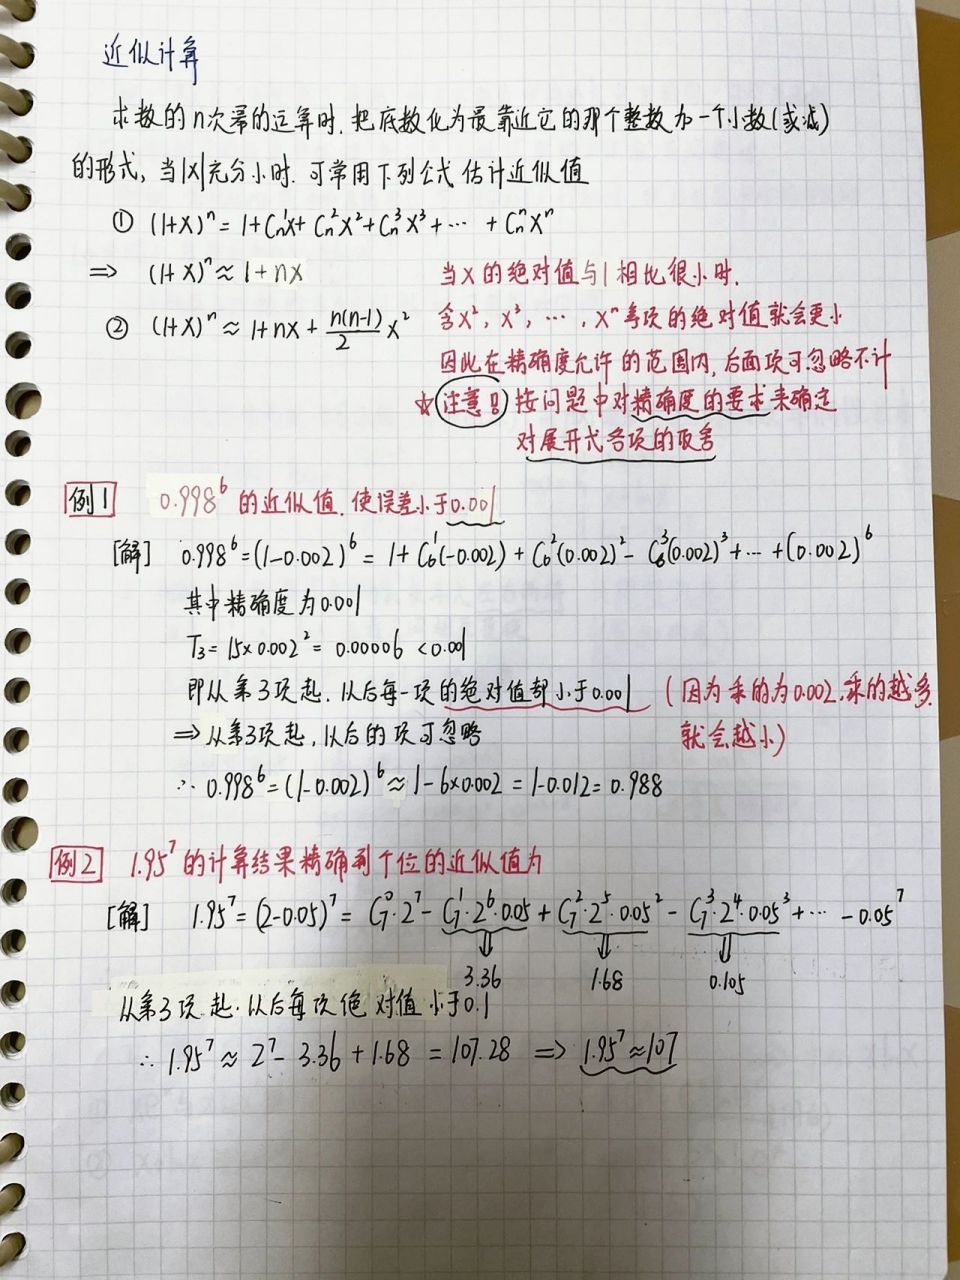 近似计算
求数的n次幂的运算时，把底数化为最靠近它的那个整数加一个小数(或减)
的形式，当|x|充分小时，可常用下列公式估计近似值
① (1+x)ⁿ = 1+Cₙ¹x+Cₙ²x²+Cₙ³x³+⋯ +Cₙⁿxⁿ
⇒ (1+x)ⁿ≈1+nx
当x的绝对值与1相比很小时，
② (1+x)ⁿ≈1+nx+n(n-1)/2 x²
含x²，x³，⋯，xⁿ等项的绝对值就会更小
因此在精确度允许的范围内，后面项可忽略不计
☆注意!! 按问题中对精确度的要求来确定
对展开式各项的取舍
例1 0.998⁶的近似值，使误差小于0.001
[解] 0.998⁶=(1-0.002)⁶= 1+C₆¹(-0.002)+C₆²(0.002)²-C₆³(0.002)³+⋯+(0.002)⁶
其中精确度为0.001
T₃=15×0.002²=0.00006 <0.001
即从第3项起，以后每一项的绝对值都小于0.001 (因为乘的为0.002，乘的越多，
就会越小)
⇒从第3项起，以后的项可忽略
∴ 0.998⁶=(1-0.002)⁶≈1-6×0.002=1-0.012=0.988
例2 1.95⁷的计算结果精确到个位的近似值为
[解] 1.95⁷=(2-0.05)⁷= C₇⁰·2⁷-C₇¹·2⁶·0.05+C₇²·2⁵·0.05²-C₇³·2⁴·0.05³+⋯-0.05⁷
3.36 1.68 0.105
从第3项起，以后每项绝对值小于0.1
∴ 1.95⁷≈2⁷-3.36+1.68=107.28 ⇒ 1.95⁷≈107